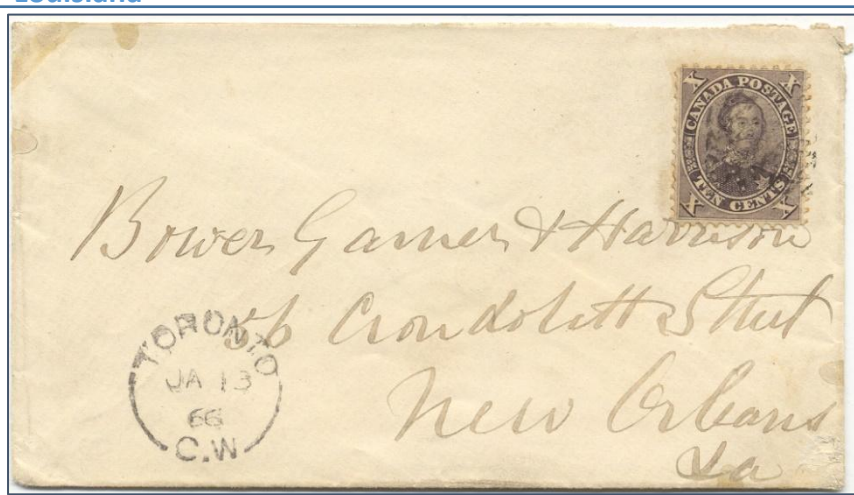 Louisiana
CANADA POSTAGE
TEN CENTS
X X
X X
Bower Garner & Harrison
56 Crondolett Street
New Orleans
La
TORONTO
JA 13
66
C.W.